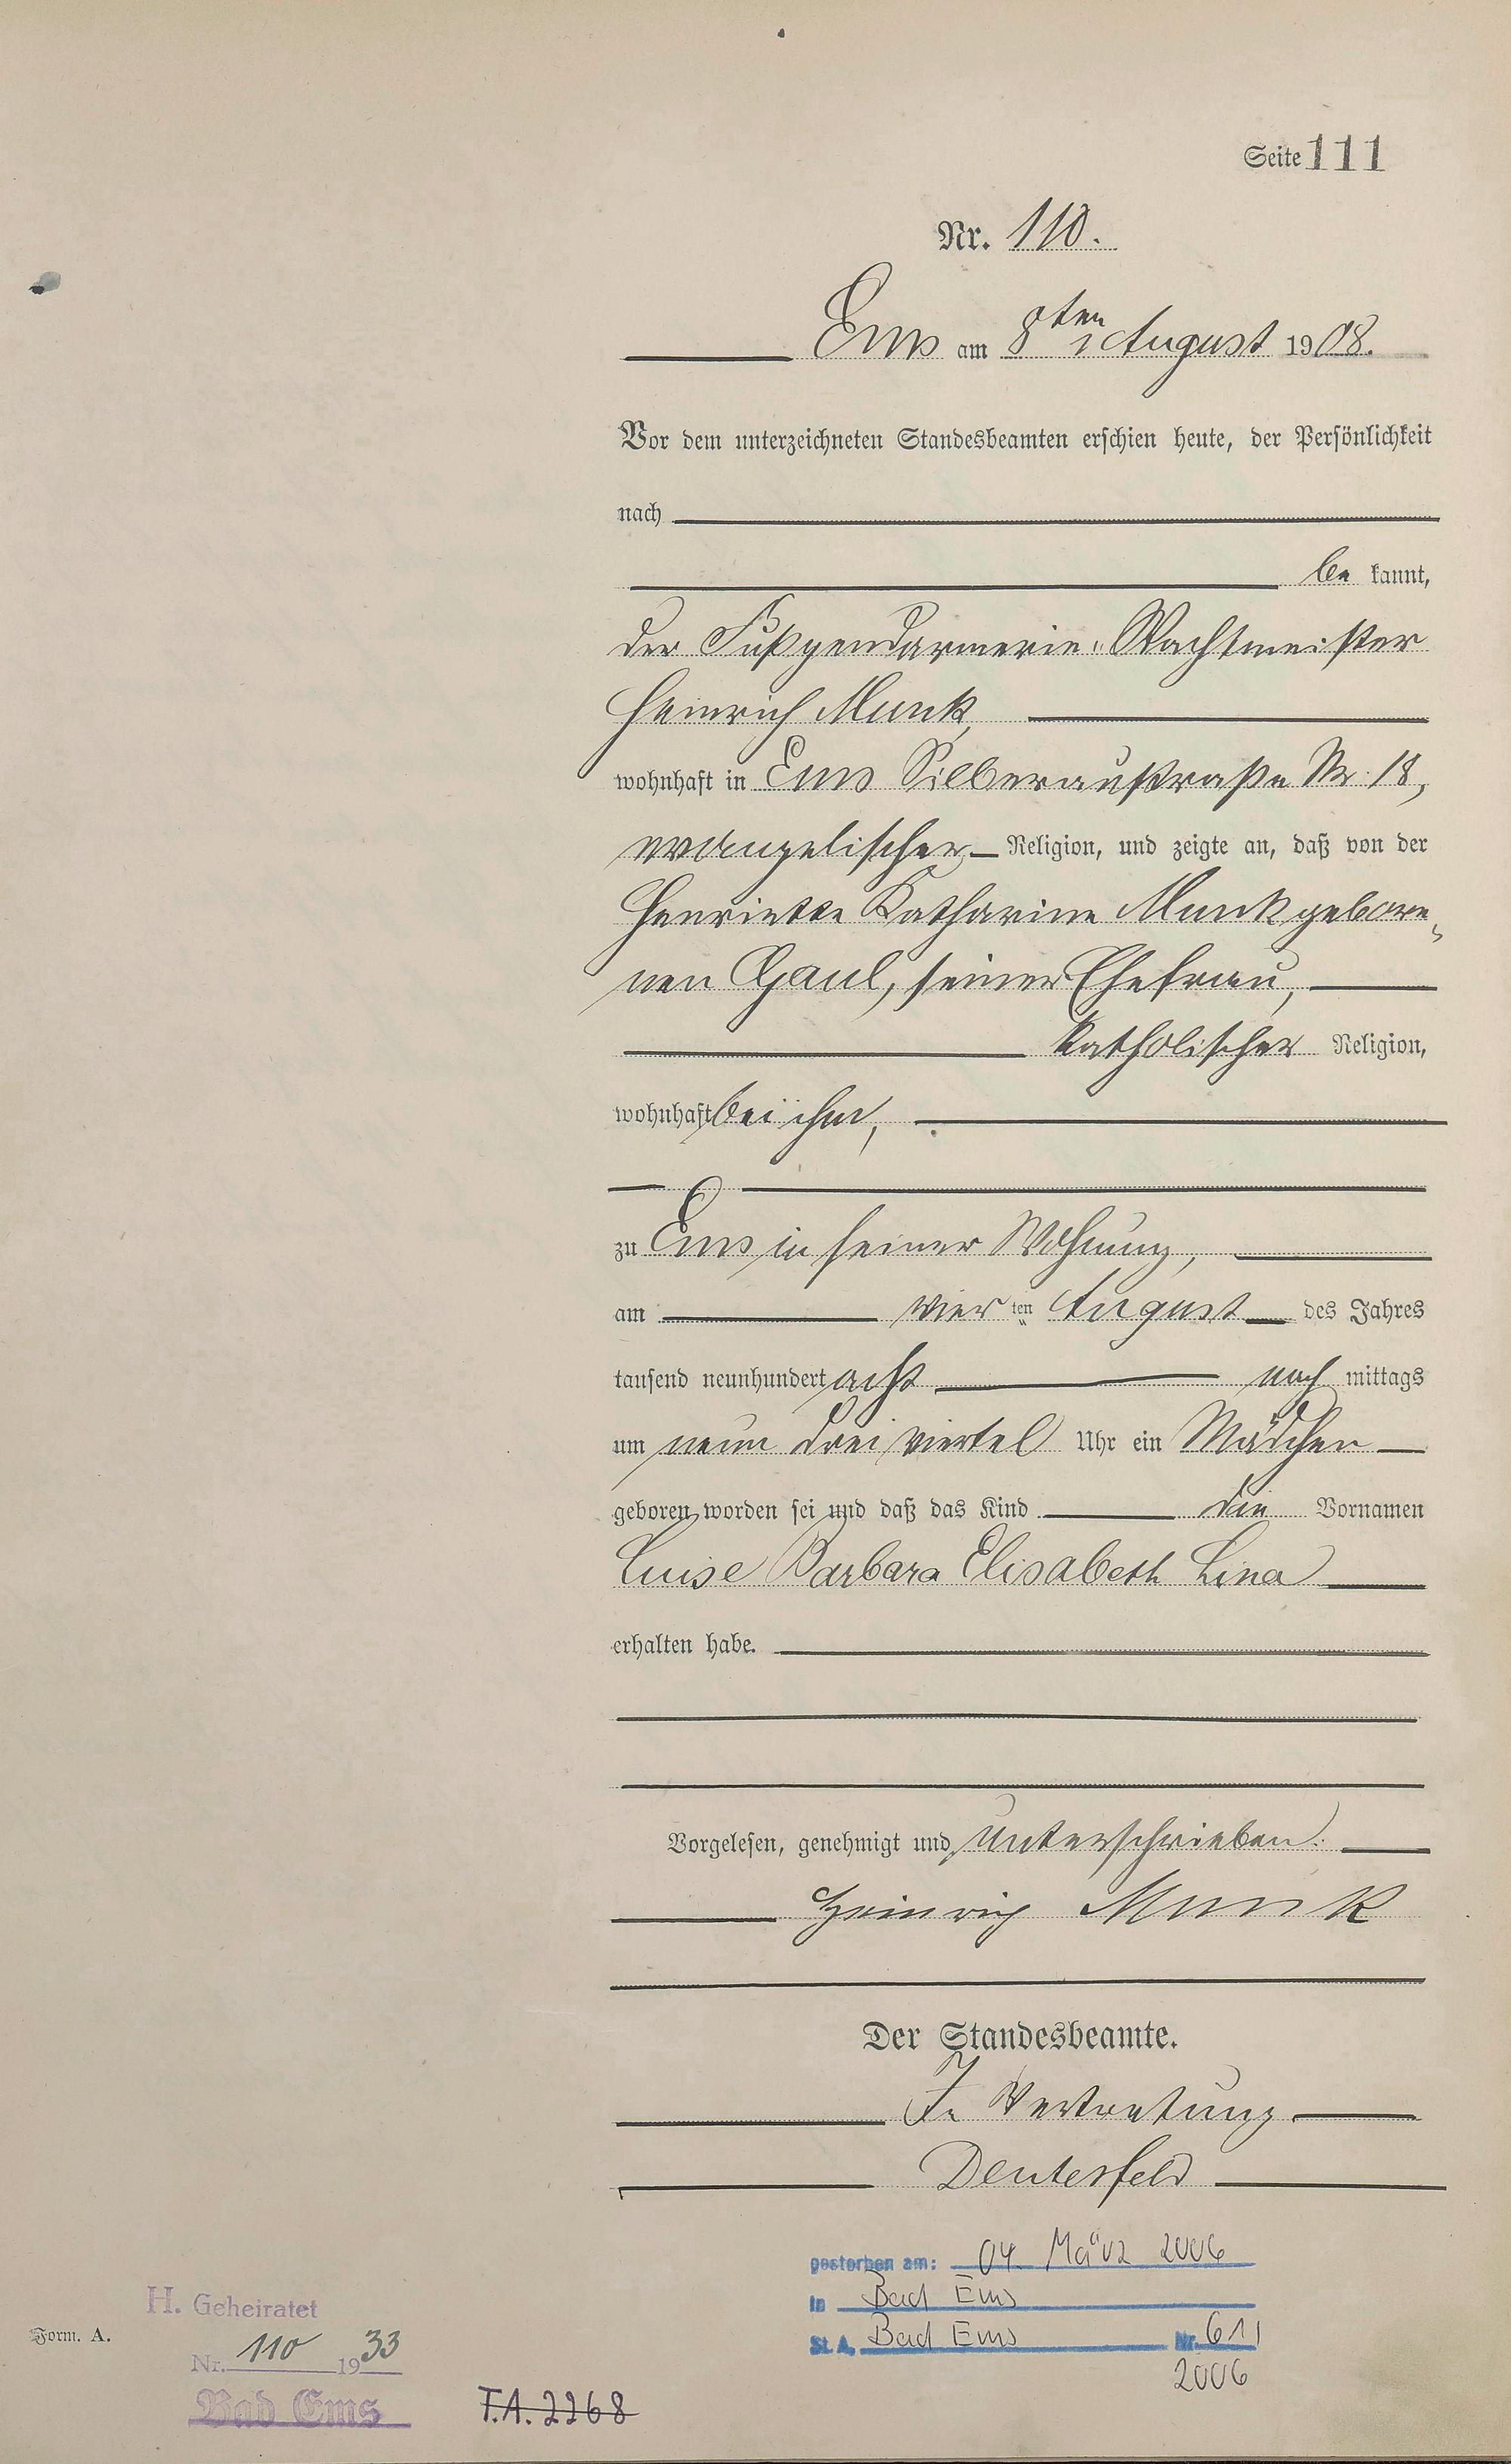 Seite 111
Nr. 110.
Ems am 8ten August 1908.
Vor dem unterzeichneten Standesbeamten erschien heute, der Persönlichkeit
nach
be kannt,
der Fußgendarmerie-Wachtmeister
Heinrich Munk,
wohnhaft in Ems Silberaustraße Nr. 18,
evangelischer Religion, und zeigte an, daß von der
Henriette Katharine Munk gebore„
nen Gaul, seiner Ehefrau,
katholischer Religion,
wohnhaft bei ihm,
zu Ems in seiner Wohnung,
am vier ten August des Jahres
tausend neunhundert acht nach mittags
um neun drei viertel Uhr ein Mädchen
geboren worden sei und daß das Kind die Vornamen
Luise Barbara Elisabeth Lina
erhalten habe.
Vorgelesen, genehmigt und unterschrieben.
Heinrich Munk
Der Standesbeamte.
In Vertretung
Deutesfeld
gestorben am: 04 März 2006
in Bad Ems
St. A. Bad Ems Nr. 611
2006
H. Geheiratet
Form. A.
Nr. 110 1933
Bad Ems
T.A. 2268